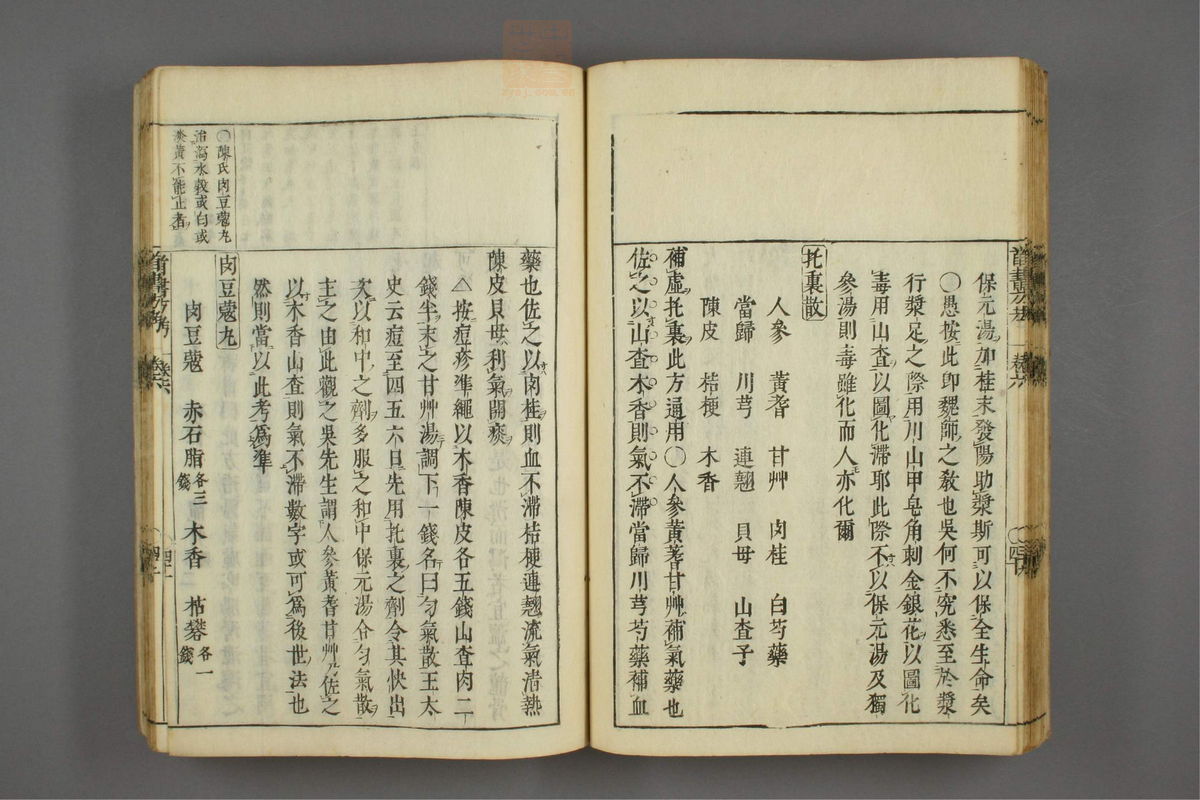 保元湯加桂末發陽助漿斯可以保全生命矣
〇愚按此卽魏師之教也吳何不究悉至於漿
行漿足之際用川山甲皂角刺金銀花以圖化
毒用山査以圖化滯耶此際不以保元湯及獨
參湯則毒雖化而人亦化爾
托裏散
人參 黃耆 甘艸 肉桂 白芍藥
當歸 川芎 連翹 貝母 山査子
陳皮 桔梗 木香
補虛托裏此方通用〇人參黃耆甘艸補氣藥也
佐之以山査木香則氣不滯當歸川芎芍藥補血
藥也佐之以肉桂則血不滯桔梗連翹流氣清熱
陳皮貝母利氣開痰
△按痘疹準繩以木香陳皮各五錢山査肉二
錢半末之甘艸湯調下一錢名曰勻氣散王太
史云痘至四五六日先用托裏之劑令其快出
次以和中之劑多服之和中保元湯合勻氣散
主之由此觀之吳先生謂人參黃耆甘艸乃佐之
以木香山査則氣不滯數字或可爲後世法也
然則當以此考爲準
〇陳氏肉豆蔻丸
治瀉水穀或白或
淡黃不能止者
肉豆蔻丸
肉豆蔻 赤石脂各三錢 木香 枯礬各一錢